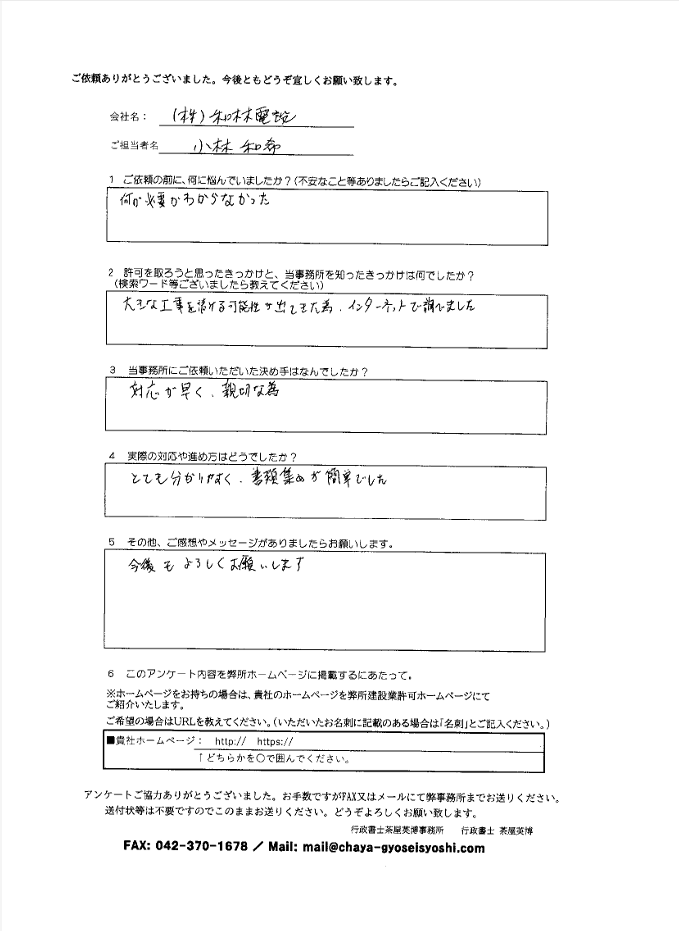 ご依頼ありがとうございました。今後ともどうぞ宜しくお願い致します。
会社名： (株)和林電設
ご担当者名 小林 和希
1 ご依頼の前に、何に悩んでいましたか？(不安なこと等ありましたらご記入ください)
何が必要かわからなかった
2 許可を取ろうと思ったきっかけと、当事務所を知ったきっかけは何でしたか？
(検索ワード等ございましたら教えてください)
大きな工事を請ける可能性が出てきた為、インターネットで調べました
3 当事務所にご依頼いただいた決め手はなんでしたか？
対応が早く、親切な為
4 実際の対応や進め方はどうでしたか？
とても分かりやすく、書類集めが簡単でした
5 その他、ご感想やメッセージがありましたらお願いします。
今後もよろしくお願いします
6 このアンケート内容を弊所ホームページに掲載するにあたって。
※ホームページをお持ちの場合は、貴社のホームページを弊所建設業許可ホームページにて
ご紹介いたします。
ご希望の場合はURLを教えてください。(いただいたお名刺に記載のある場合は「名刺」とご記入ください。)
■貴社ホームページ： http:// https://
↑どちらかを○で囲んでください。
アンケートご協力ありがとうございました。お手数ですがFAX又はメールにて弊事務所までお送りください。
送付状等は不要ですのでこのままお送りください。どうぞよろしくお願い致します。
行政書士茶屋英博事務所 行政書士 茶屋英博
FAX: 042-370-1678 ／ Mail: mail@chaya-gyoseisyoshi.com